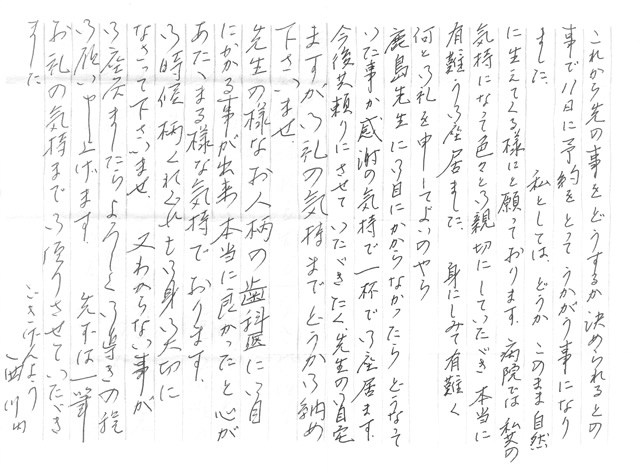 これから先の事をどうするか決められるとの
事で11日に予約をとってうかがう事になり
ました。 私としては、どうか このまま自然
に生えてくる様にと願っております。病院では 私の
気持になって色々とご親切にしていただき 本当に
有難うご座居ました。 身にしみて有難く
何とご礼を申してよいのやら
鹿島先生にご目にかからなかったら どうなって
いた事か感謝の気持で一杯でご座居ます。
今後共頼りにさせていただきたく、先生のご自宅
ますがご礼の気持まで どうかご納め
下さいませ。
先生の様なお人柄の 歯科医にご目
にかかる事が出来 本当に良かったと心が
あたゝまる様な気持で おります。
ご時候柄くれぐれもご身ご大切に
なさって下さいませ。 又わからない事が
ご座居ましたらよろしくご導きの程
ご願い申し上げます。 先ずは一筆
お礼の気持までご便りさせていただき
ました
ごきげんよう
西川